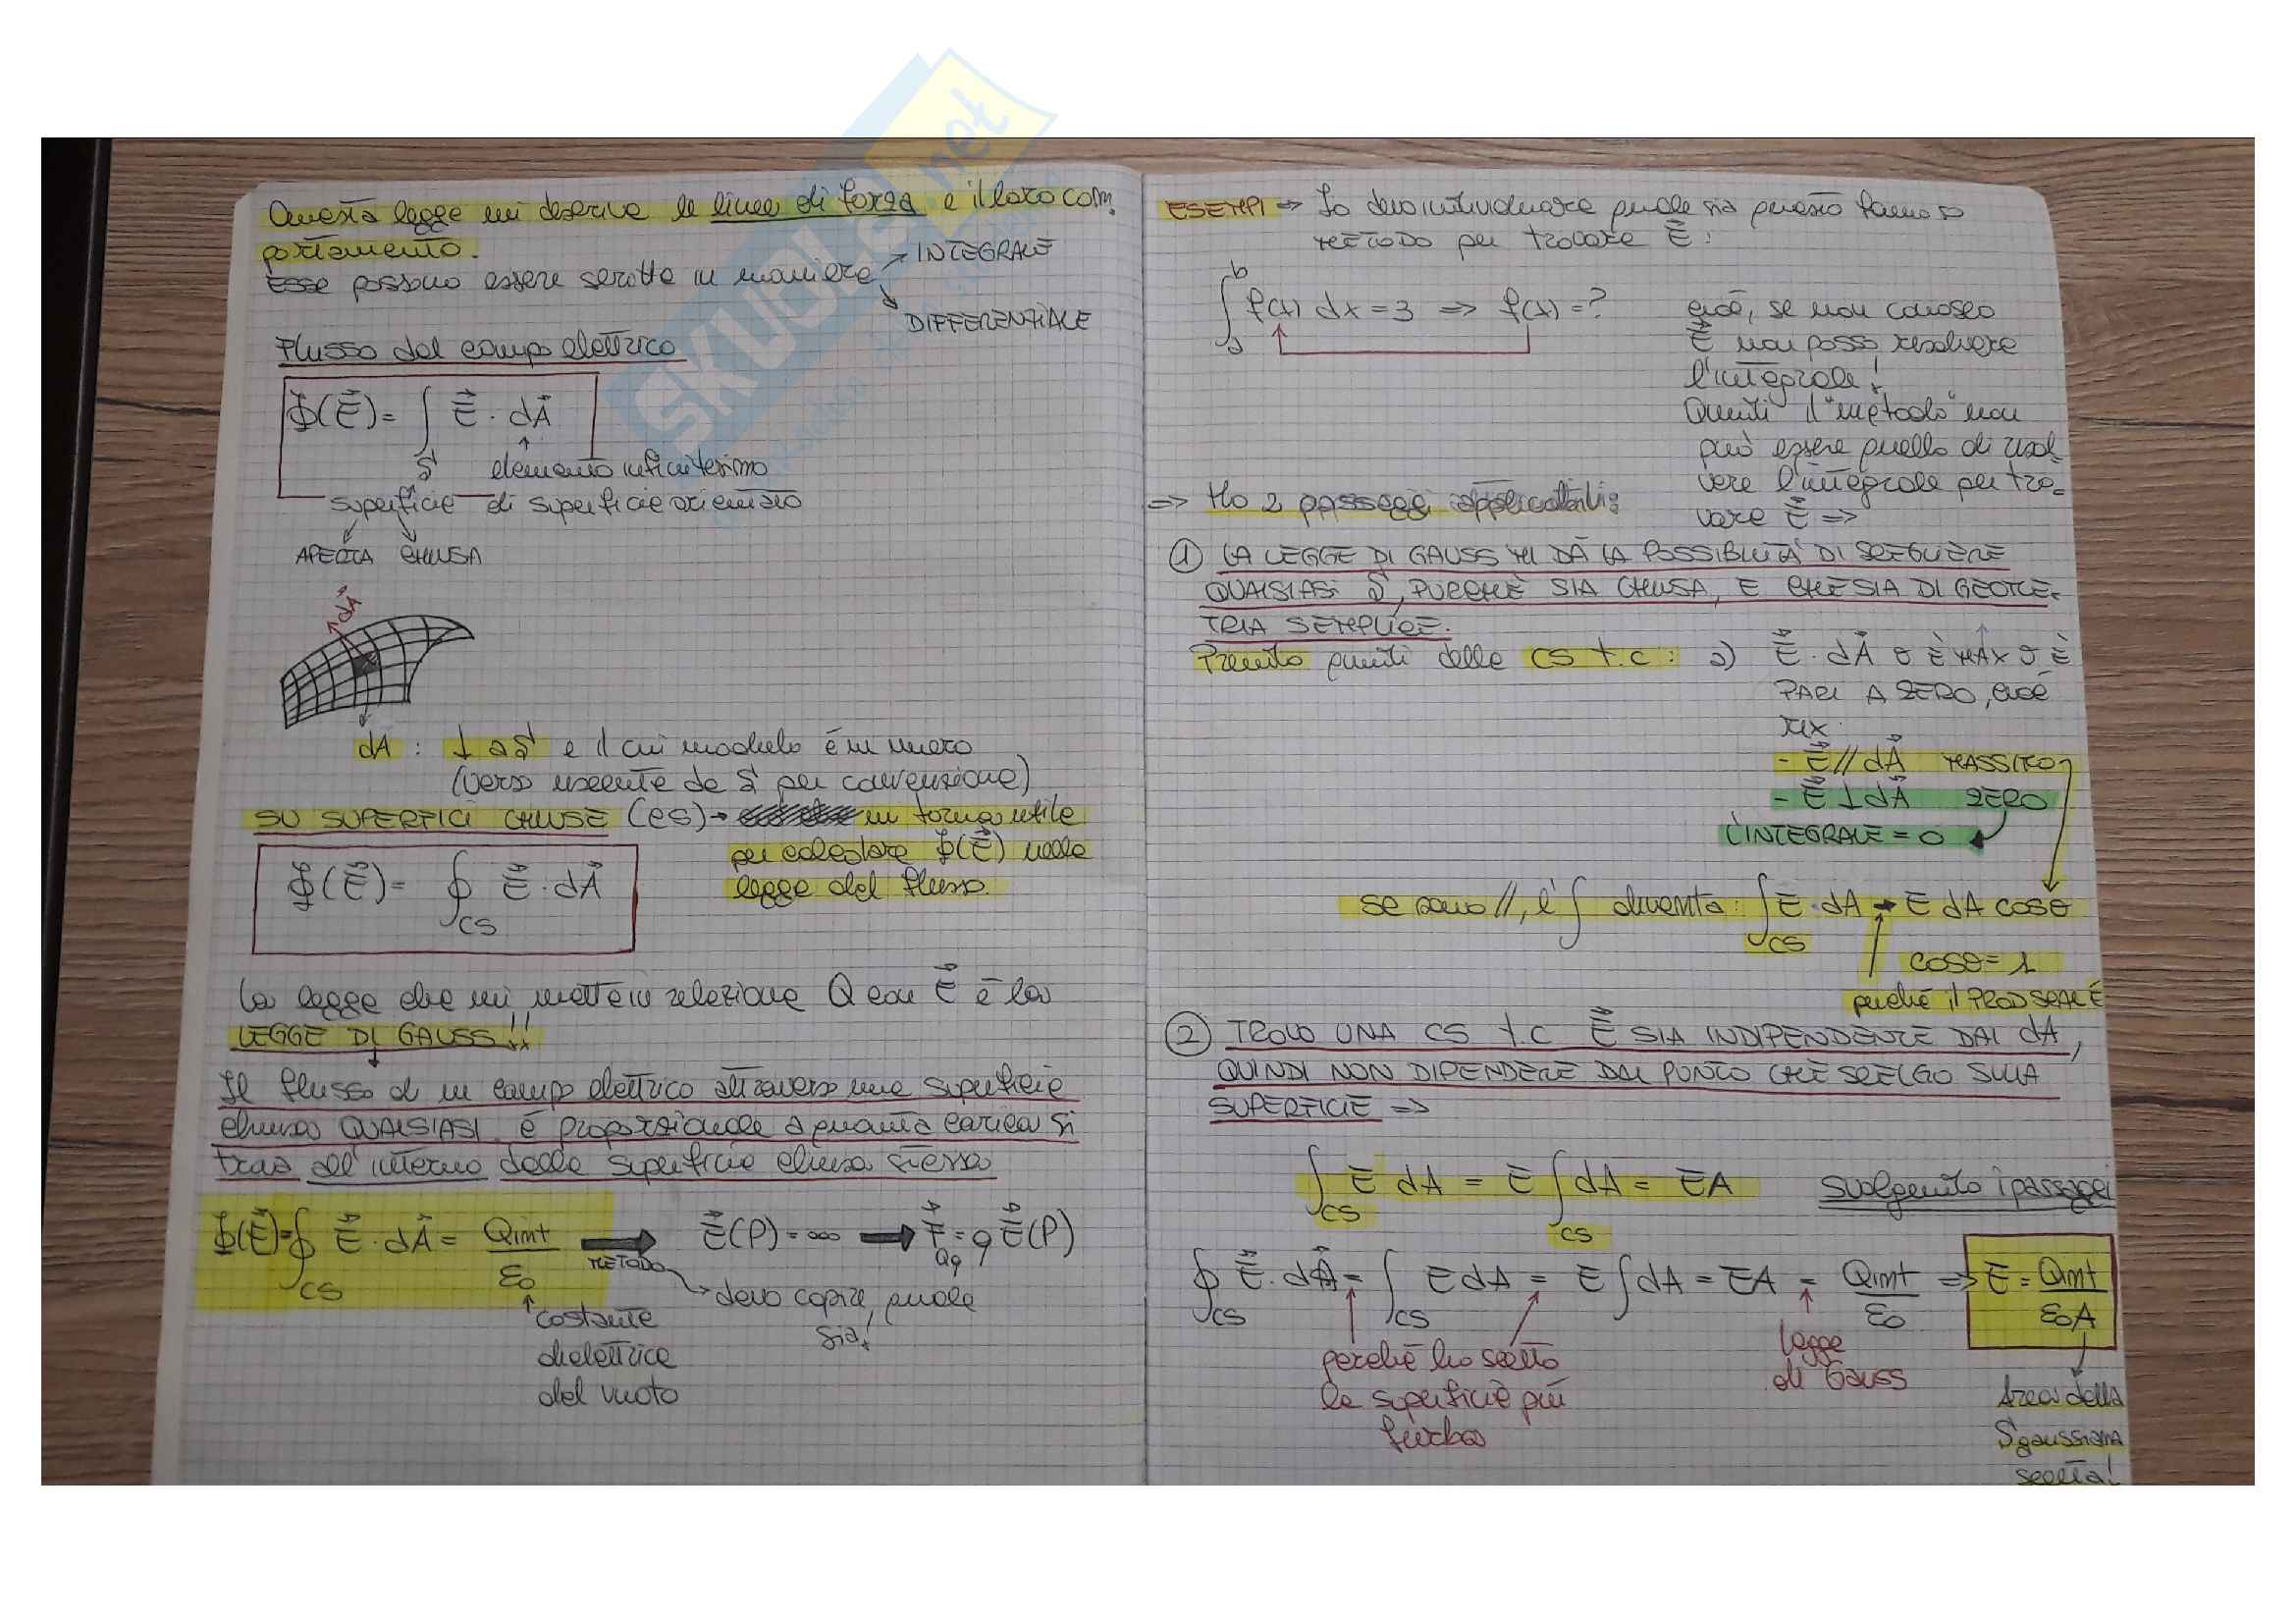 Questa legge mi descrive le linee di forza e il loro com
portamento.
Esse possono essere scritte in maniera
INTEGRALE
DIFFERENZIALE
Flusso del campo elettrico
Φ(E⃗) = ∫ E⃗ · dA⃗
S elemento infinitesimo
superficie di superficie orientato
APERTA CHIUSA
dA⃗
dA : ⊥ a S e il cui modulo è un numero
(verso uscente da S per convenzione)
SU SUPERFICI CHIUSE (CS) → mi torna utile
per calcolare Φ(E⃗) nella
legge del flusso.
Φ(E⃗) = ∮ E⃗ · dA⃗
CS
La legge che mi mette in relazione Q con E⃗ è la
LEGGE DI GAUSS!!
Il flusso di un campo elettrico attraverso una superficie
chiusa QUALSIASI, è proporzionale a quanta carica si
trova all'interno della superficie chiusa stessa
Φ(E⃗) = ∮ E⃗ · dA⃗ = Qint / ε0 METODO E⃗(P) = ∞ → F⃗ = q E⃗(P)
CS Qq
costante
dielettrica
del vuoto
devo capire, quale
sia!
ESEMPI ⇒ Io devo individuare quale sia questo famoso
METODO per trovare E⃗:
∫ f(x) dx = 3 ⇒ f(x) = ?
b
a
cioè, se non conosco
E⃗ non posso risolvere
l'integrale!
Quindi il "metodo" non
può essere quello di risol_
vere l'integrale per tro_
vare E⃗ ⇒
⇒ Ho 2 passaggi applicabili:
① LA LEGGE DI GAUSS MI DÀ LA POSSIBILITÀ DI SCEGLIERE
QUALSIASI S, PURCHÈ SIA CHIUSA, E CHE SIA DI GEOME_
TRIA SEMPLICE.
Prendo punti della CS t.c: a) E⃗ · dA⃗ O È MAX O È
PARI A ZERO, cioè
- E⃗ // dA⃗ MASSIMO
- E⃗ ⊥ dA⃗ ZERO
L'INTEGRALE = 0
se sono //, l'∫ diventa: ∫ E · dA → E dA cosθ
CS
cosθ = 1
perché il PROD SCAL È
② TROVO UNA CS t.c E⃗ SIA INDIPENDENTE DAL dA,
QUINDI NON DIPENDERE DAL PUNTO CHE SCELGO SULLA
SUPERFICIE ⇒
∫ E dA = E ∫ dA = EA svolgendo i passaggi
CS CS
∮ E⃗ · dA⃗ = ∫ E dA = E ∫ dA = EA = Qint / ε0 ⇒ E = Qint / ε0A
CS CS
perché ho scelto
la superficie più
furba
legge
di Gauss
Area della
Sgaussiana
scelta!
SKUOLA.net